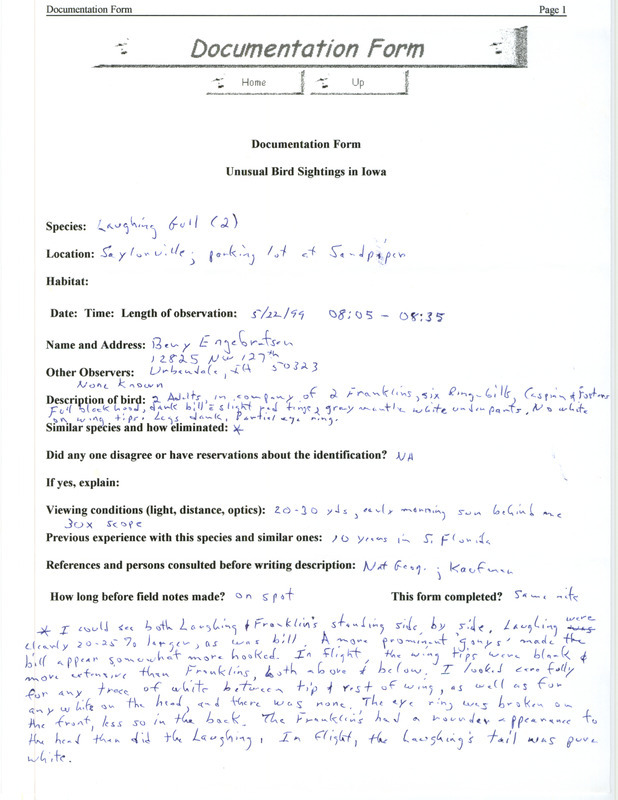 Documentation Form Page 1
Documentation Form
Home Up
Documentation Form
Unusual Bird Sightings in Iowa
Species: Laughing Gull (2)
Location: Saylorville; parking lot at Sandpiper
Habitat:
Date: Time: Length of observation: 5/22/99 08:05 - 08:35
Name and Address: Bery Engebretsen
12825 NW 127th
Urbandale, IA 50323
Other Observers:
None known
Description of bird: 2 Adults, in company of 2 Franklins, six Ring-bills, Caspian & Fosters
Full black hood, dark bill & slight red tinge, gray mantle white underparts, No white
on wing tips. Legs dark. Partial eye ring.
Similar species and how eliminated: *
Did any one disagree or have reservations about the identification? NA
If yes, explain:
Viewing conditions (light, distance, optics): 20-30 yds, early morning sun behind me
30x scope
Previous experience with this species and similar ones: 10 years in S. Florida
References and persons consulted before writing description: Nat Geog. ; Kaufman
How long before field notes made? on spot This form completed? Same nite
* I could see both Laughing & Franklin's standing side by side. Laughing were
clearly 20-25% larger, as was bill. A more prominent 'gonys' made the
bill appear somewhat more hooked. In flight the wing tips were black &
more extensive than Franklins, both above & below. I looked carefully
for any trace of white between tip & rest of wing, as well as for
any white on the head, and there was none. The eye ring was broken on
the front, less so in the back. The Franklins had a rounder appearance to
the head than did the Laughing. In flight, the Laughing's tail was pure
white.